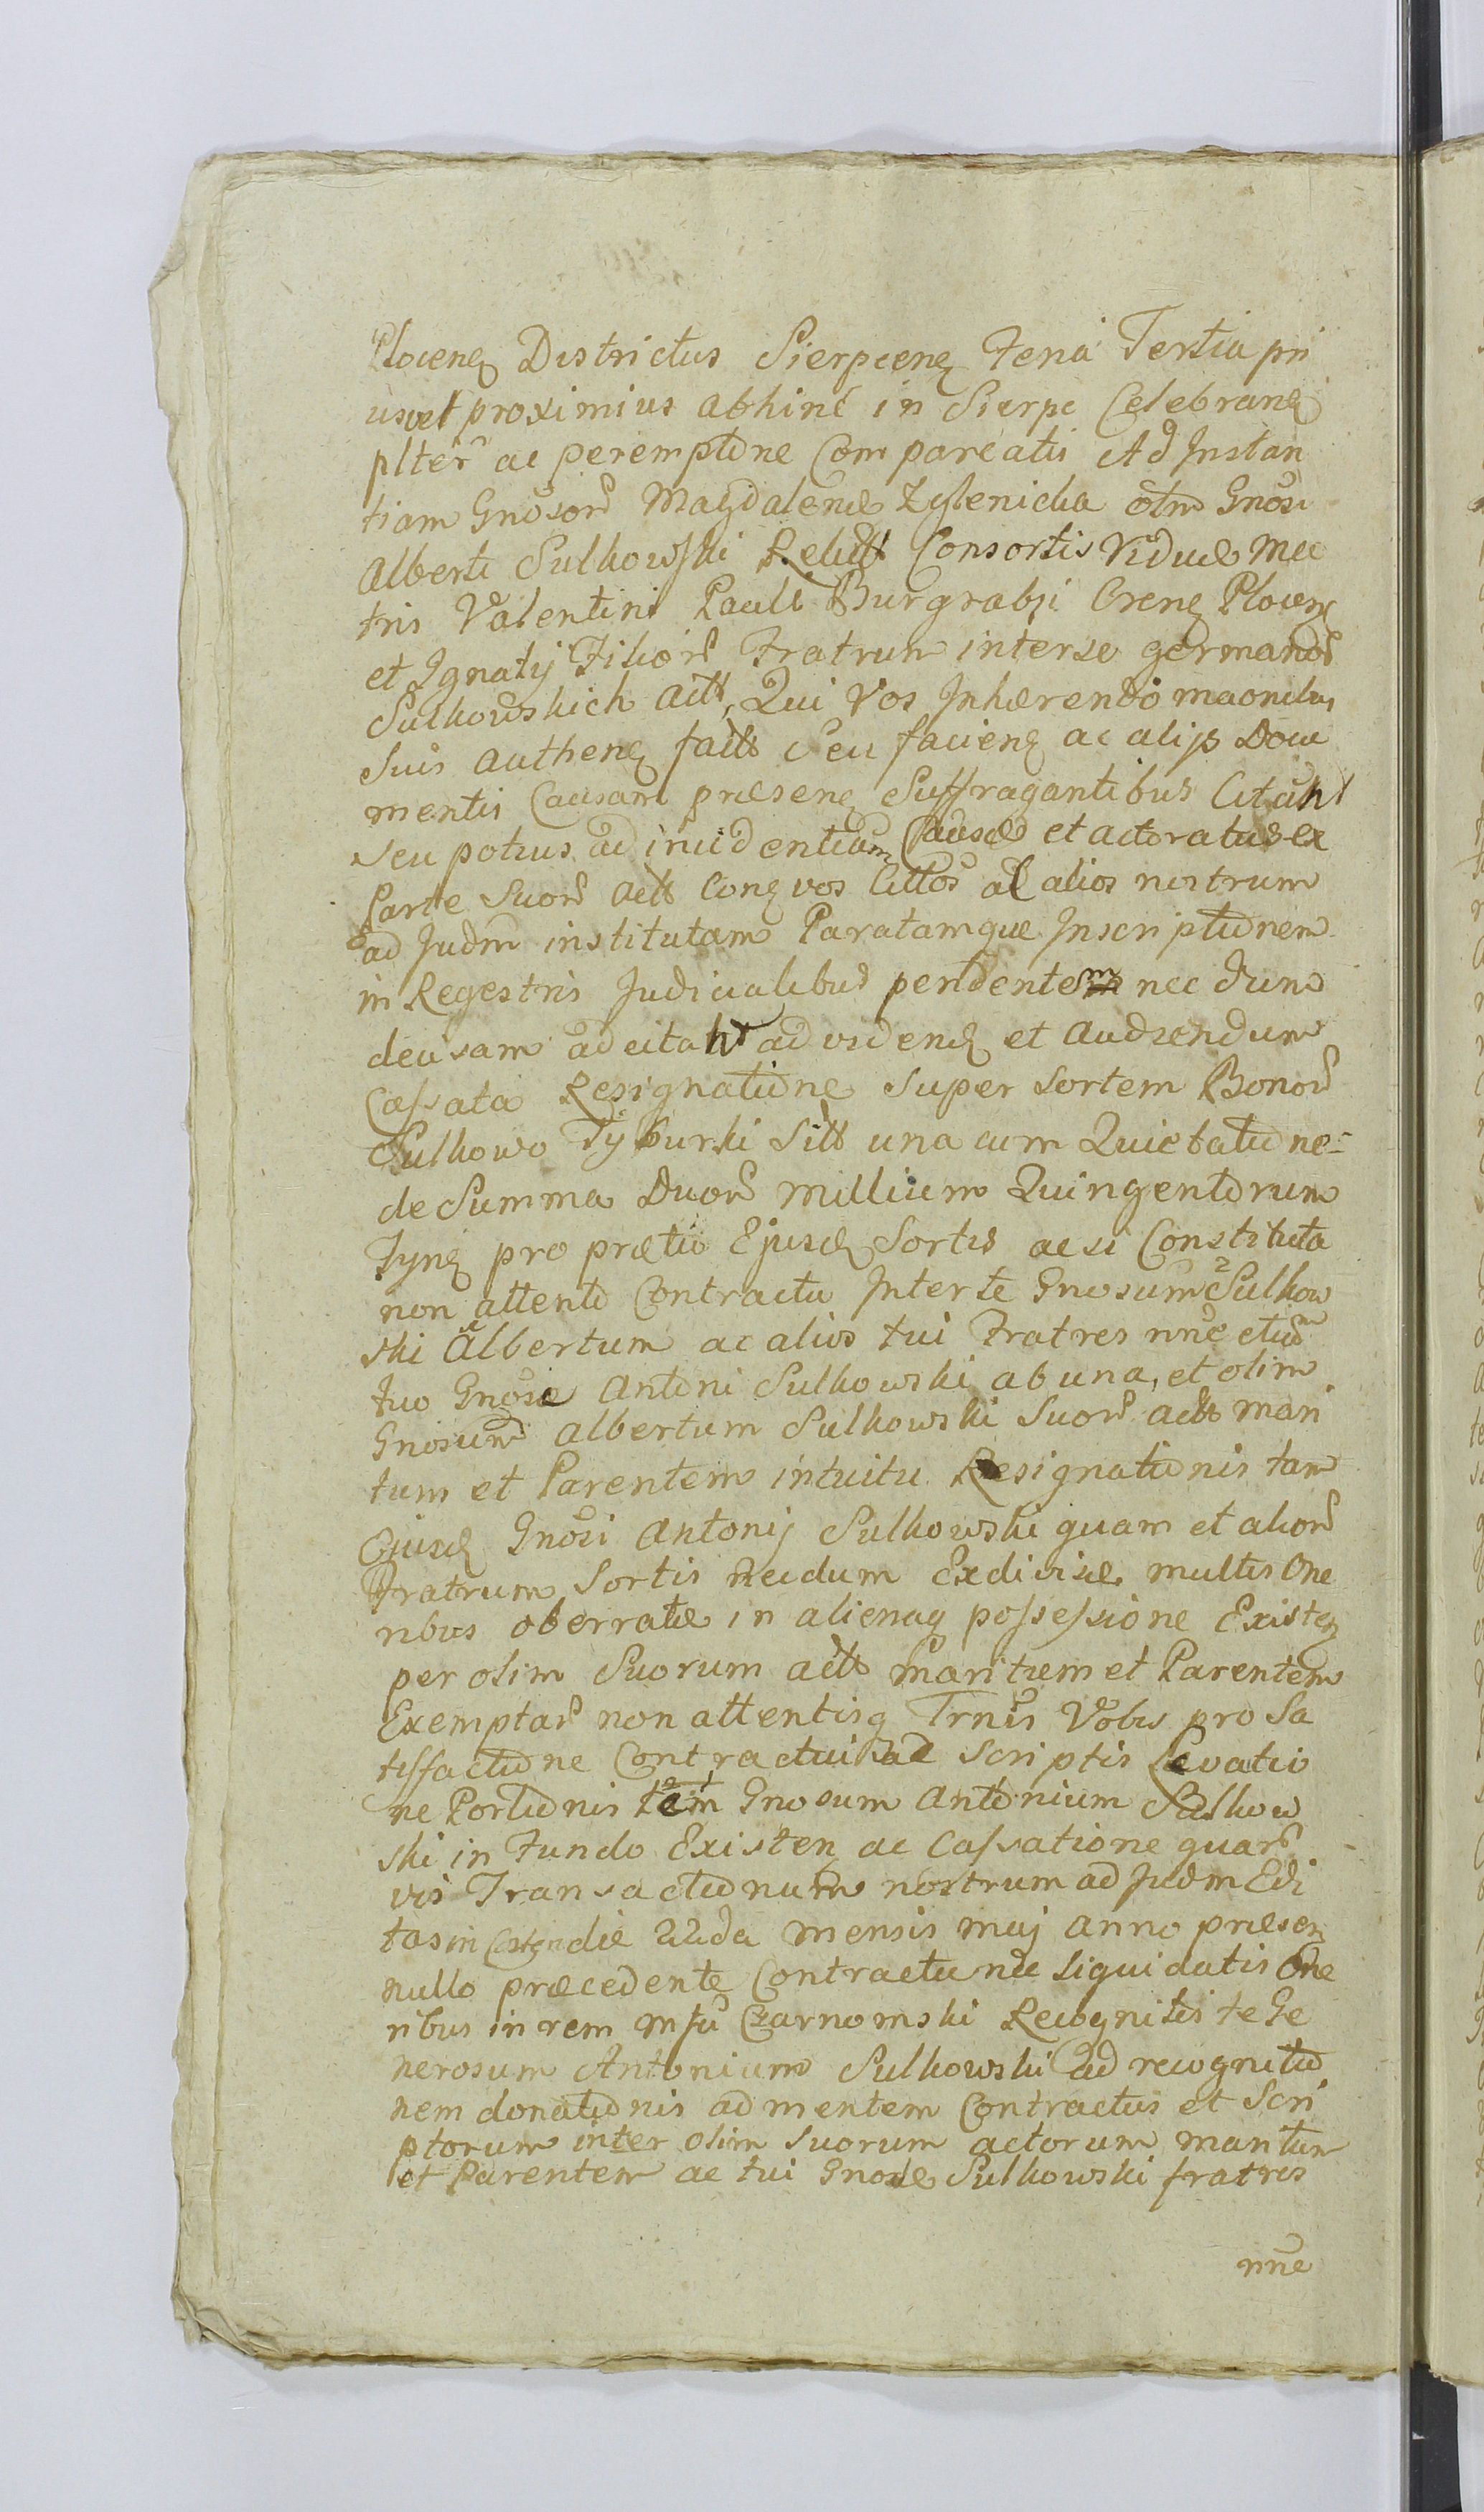 Plocenꝫ Districtus Sierpcenꝫ Feria Tertia pri
usvel proximius abhinc in Sierpc Celebranꝫ
plter ac peremptorie Compareatis Ad Instan
tiam Gnosor Magdalenæ Zglenicka olim Gnosi
Alberti Sulkowski Relictt Consortis Viduæ Ma
tris Valentini Pauli Burgrabji Crenꝫ Plocenꝫ
et Ignatij Filior Fratrum interse germanor
Sulkowskich actt, Qui Vos Inhærendo
suis Authenꝫ factt seu facienꝫ ac alijs Docu
mentis Causam præsenꝫ Suffragantibus Citant
seu potius ad incidentiam Causæ et actoratus ex
Parte Suor actt Conꝫ vos Cittos al alios nostrum
ad Judm institutam Paratamque Inscriptionem
in Regestris Judicialibus pendentem nec dum
decisam adcitant ad videnꝫ et Audiendum
Cassata Resignatione super sortem Bonor
Sulkowo Tyburki sitt una cum Quietatione
de Summa Duor millium Quingentorum
Fynꝫ pro prætio Ejusdꝫ Sortis acsi Constituta
non attento Contractu Inter te Gnosum Sulkow
ski Albertum ac alios tui Fratres nunc etiam
tuo Gnosæ Antoni Sulkowski ab una, et olim
Gnosum Albertum Sulkowski Suor actt mari
tum et Parentem intuitu Resignationis tam
Ejusdꝫ Gnosi Antonij Sulkowski quam et alior
Fratrum Sortis necdum Exdivisæ multis One
ribus oberratæ in alienaq possessione Existenꝫ
per olim Suorum actt maritum et Parentem
Exemptar non attentisq Trnis Vobis pro Sa
tisfactione Contractui ad scriptis Levatio
ne Portionis Gnosum Antonium Sulkow
ski in Fundo Existen ac Cassatione quar
vis Transactionum nostrum ad Judm Edi
tas in Castren die 22da mensis maij anno præsen
nullo præcedente Contractu nec liquidatis One
ribus in rem Mfci Czarnomski Recognitis te Ge
nerosum Antonium Sulkowski ad recognitio
nem donationis ad mentem Contractus et Scri
ptorum inter olim suorum actorum maritum
et Parentem ac tui Gnosæ Sulkowski fratres
nne